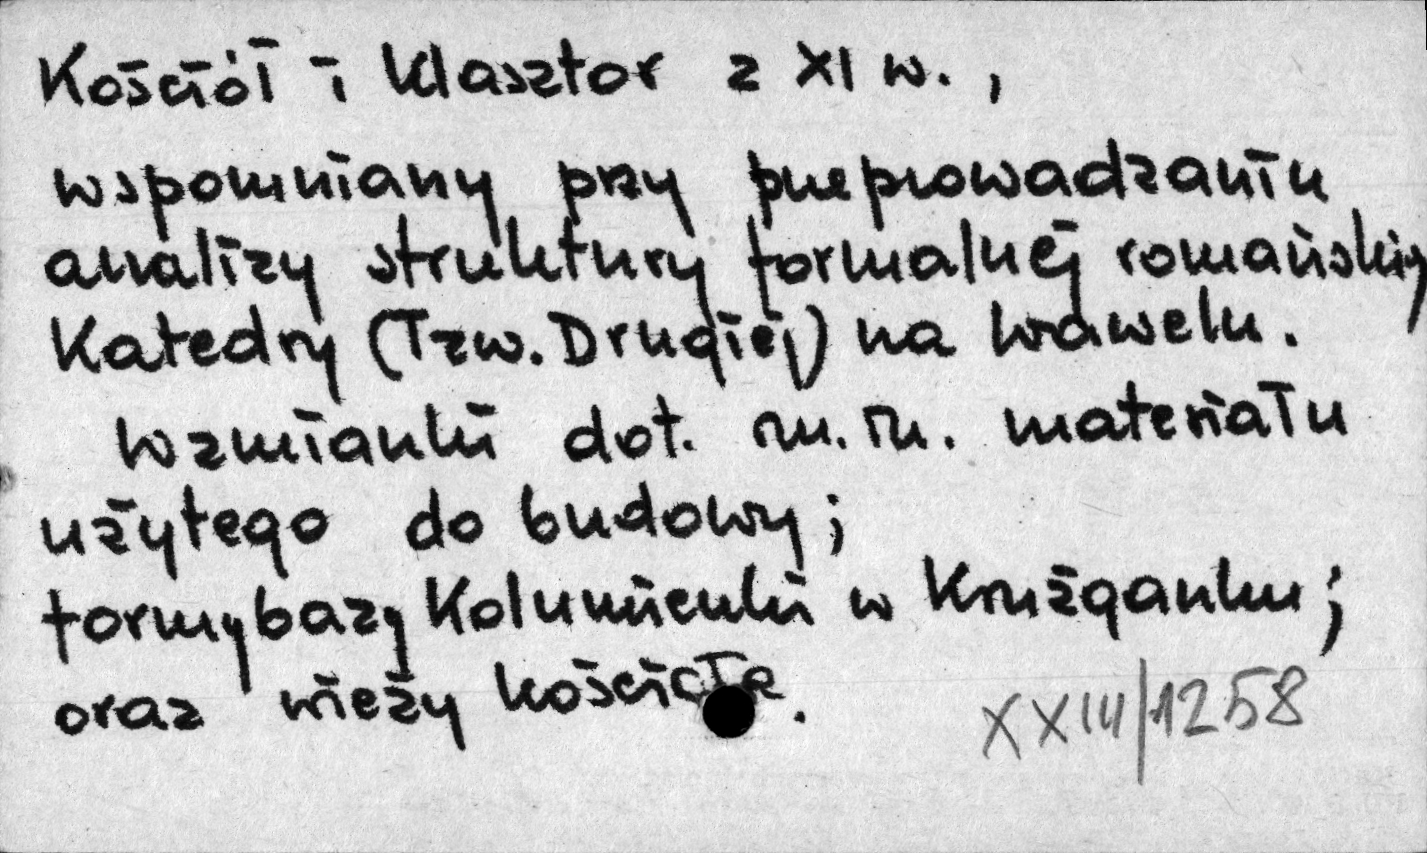 Kościół i klasztor z XI w.,
wspomniany przy przeprowadzaniu
analizy struktury formalnej romańskiej
Katedry (Tzw. Drugiej) na Wawelu.
Wzmianki dot. m.in. materiału
użytego do budowy;
formy bazy kolumienki w Krużganku;
oraz wieży kościoła.
XXIII/1258